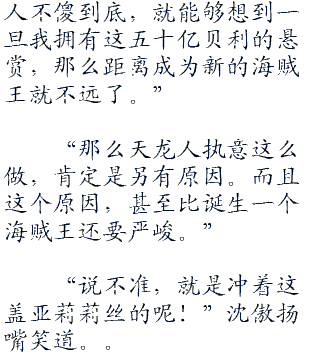 人不傻到底，就能够想到一
旦我拥有这五十亿贝利的悬
赏，那么距离成为新的海贼
王就不远了。”
“那么天龙人执意这么
做，肯定是另有原因。而且
这个原因，甚至比诞生一个
海贼王还要严峻。”
“说不准，就是冲着这
盖亚莉莉丝的呢！”沈傲扬
嘴笑道。。